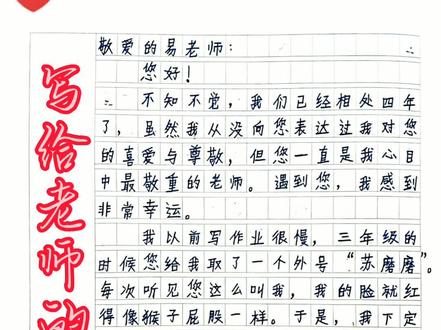 敬爱的易老师:
您好!
不知不觉,我们已经相处四年
了,虽然我从没向您表达过我对您
的喜爱与尊敬,但您一直是我心目
中最敬重的老师。遇到您,我感到
非常幸运。
我以前写作业很慢,三年级的
时候您给我取了一个外号“苏磨磨”。
每次听见您这么叫我,我的脸就红
得像猴子屁股一样。于是,我下定
写给老师的